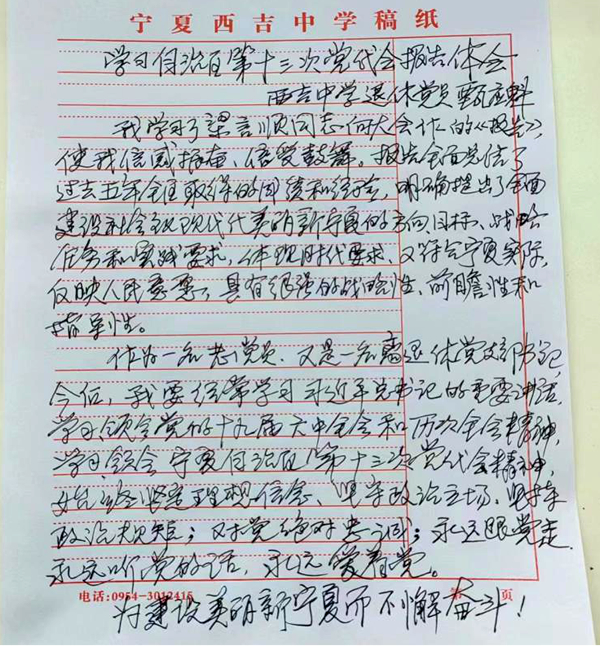 宁夏西吉中学稿纸
学习自治区第十三次党代会报告体会
西吉中学退休党员 甄
我学习了梁言顺同志向大会作的《报告》,
使我倍感振奋、倍受鼓舞。报告全面总结了
过去五年全区取得的成绩和经验,明确提出了全面
建设社会主义现代化美丽新宁夏的方向目标、战略
任务和实践要求,体现时代要求、又符合宁夏实际,
反映人民意愿,具有很强的战略性、前瞻性和
指导性。
作为一名老党员、又是一名离退休党支部书记,
今后,我要经常学习习近平总书记的重要讲话,
学习领会党的十九届六中全会和历次全会精神,
学习领会宁夏自治区第十三次党代会精神,
始终坚定理想信念、坚守政治立场、坚持
政治规矩;对党绝对忠诚;永远跟党走,
永远听党的话,永远爱着党。
电话:0954-3012415 第 页
为建设美丽新宁夏而不懈奋斗!